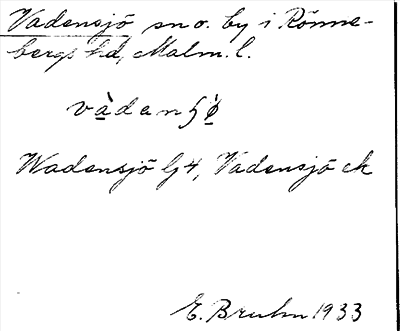 Vadensjö sn o. by i Rönne-
bergs hd, Malm. l.
vàdanʃø̀
Wadensjö Gj 4, Vadensjö ek
E. Bruhn 1933